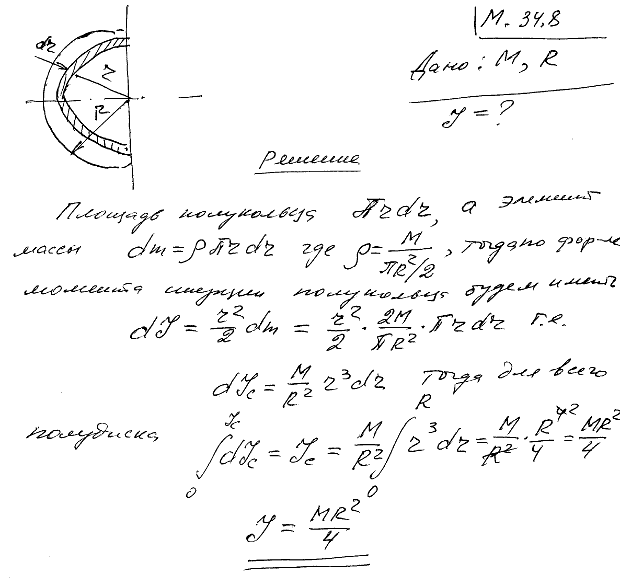 М. 34.8
dr
r
R
Дано: M, R
J = ?
Решение
Площадь полукольца πrdr, а элемент
массы dm = ρπrdr где ρ = M/(πR²/2), тогда по фор-ле
момента инерции полукольца будем иметь
dJ = r²/2 dm = r²/2 · 2M/(πR²) · πrdr т.е.
dJc = M/R² r³dr тогда для всего
полудиска ∫₀^Jc dJc = Jc = M/R² ∫₀^R r³dr = M/R² · R⁴/4 = MR²/4
J = MR²/4